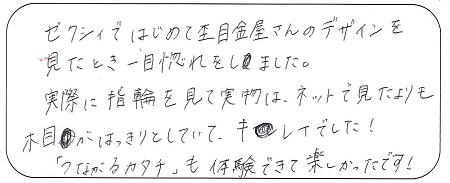 ゼクシィではじめて杢目金屋さんのデザインを
見たとき一目惚れをしました。
実際に指輪を見て実物は、ネットで見たよりも
木目がはっきりとしていて、キレイでした！
「つながるカタチ」も体験できて楽しかったです！